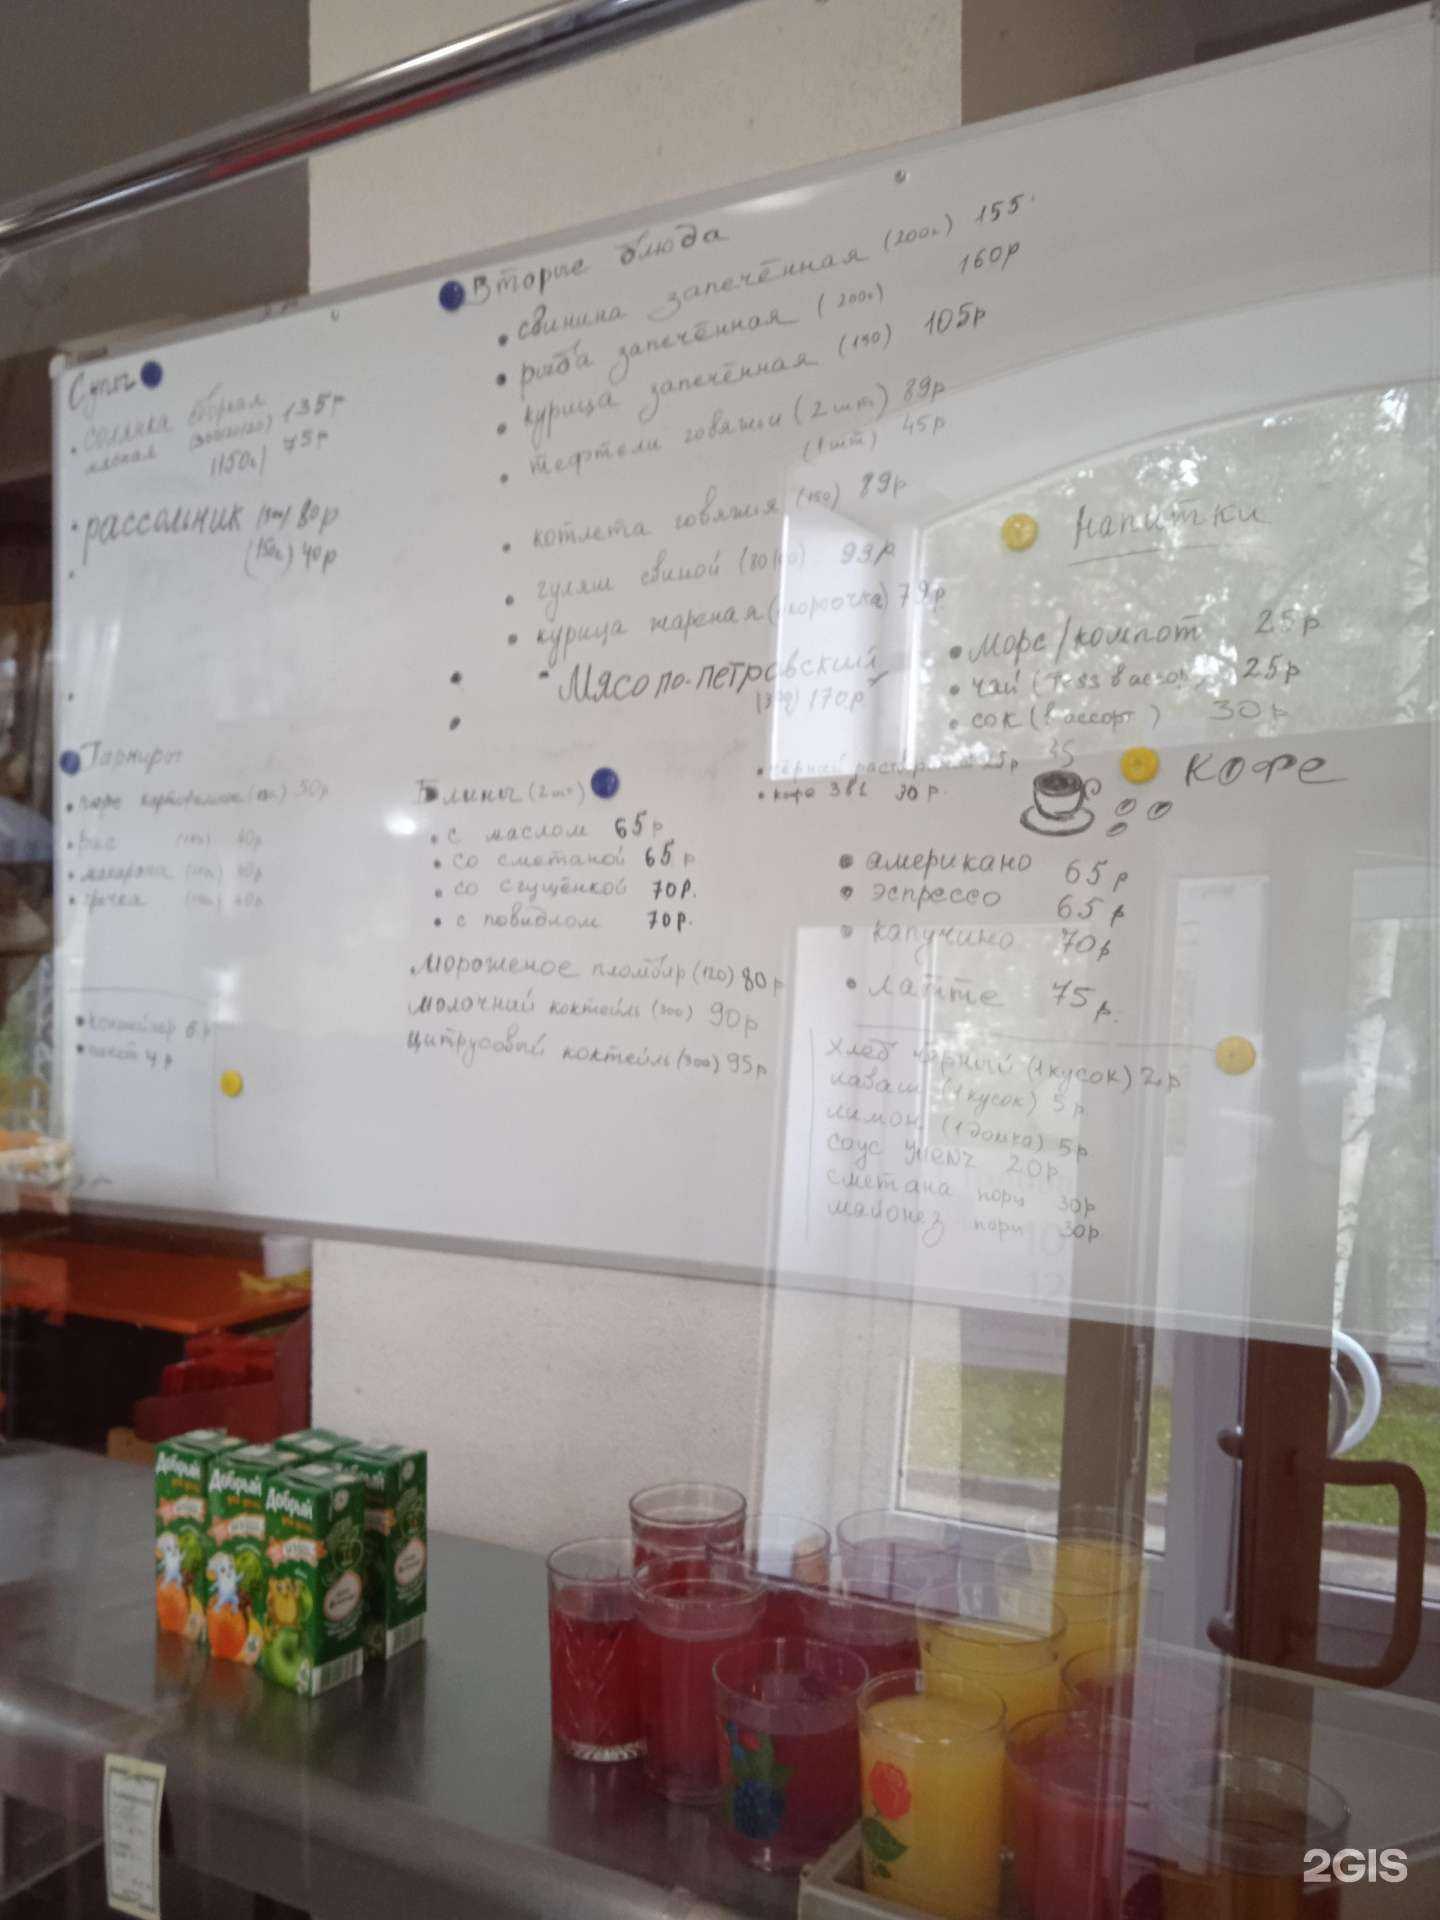 Вторые блюда
• свинина запечённая (200г) 155.
• рыба запечённая (200г) 160р
• курица запечённая (150) 105р
• тефтели говяжьи (2 шт) 89р
(1 шт) 45р
• котлета говяжья (150) 89р
• гуляш свиной 93р
• курица жареная 79р
Мясо по-петровский
170р
Супы
• солянка сборная 135р
мясная
(150г) 75р
• рассольник (300) 80р
(150г) 40р
Гарниры
• пюре картофельное 50р
• рис 40р
• макароны 40р
• гречка 40р
• контейнер 6р
• пакет 4р
Блины (2 шт)
• с маслом 65р
• со сметаной 65р
• со сгущёнкой 70р.
• с повидлом 70р.
Мороженое пломбир (120) 80р
Молочный коктейль (300) 90р
Цитрусовый коктейль (300) 95р
Напитки
• Морс/компот 25р
• чай (Tess в ассорт) 25р
• сок (в ассорт) 30р
• чёрный растворимый 25р
• кофе 3в1 30р.
кофе
• американо 65р
• эспрессо 65р
• капучино 70р
• латте 75р.
хлеб чёрный (1 кусок) 2р
лаваш (1 кусок) 5р
лимон (1 долька) 5р
соус 20р
сметана порц 30р
майонез порц 30р
Добрый
Добрый
Добрый
Добрый
2GIS